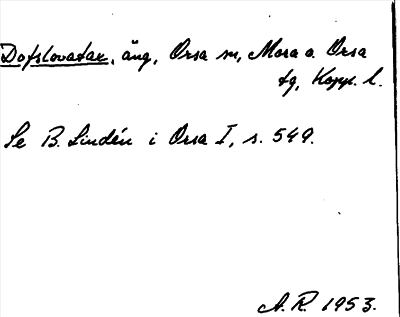 Dofslovatar, äng, Orsa sn, Mora o. Orsa
tg, Kopp. l.
Se B. Lindén i Orsa I, s. 549.
A. R. 1953.